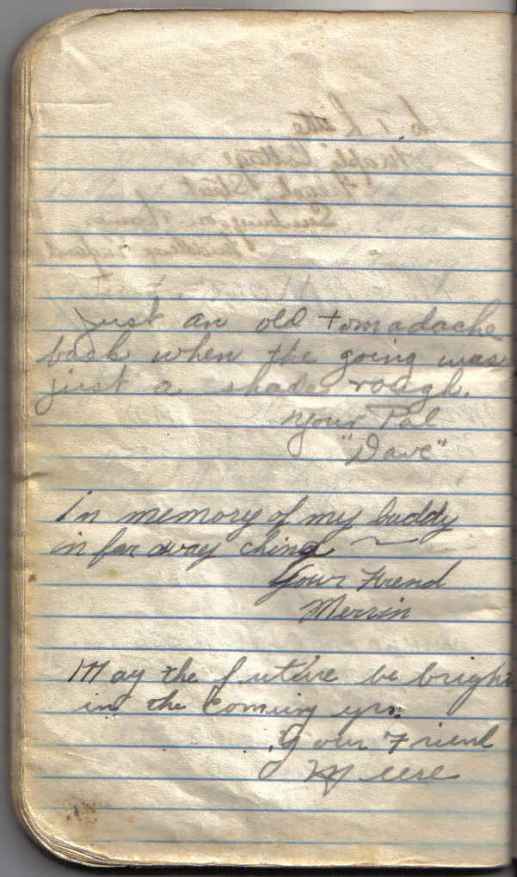 Just an old tomadache
back when the going was
just a shade rough.
Your Pal
"Dave"
In memory of my buddy
in far away china
Your Frend
Mervin
May the future be bright
in the Coming yrs.
Your Friend
Meese